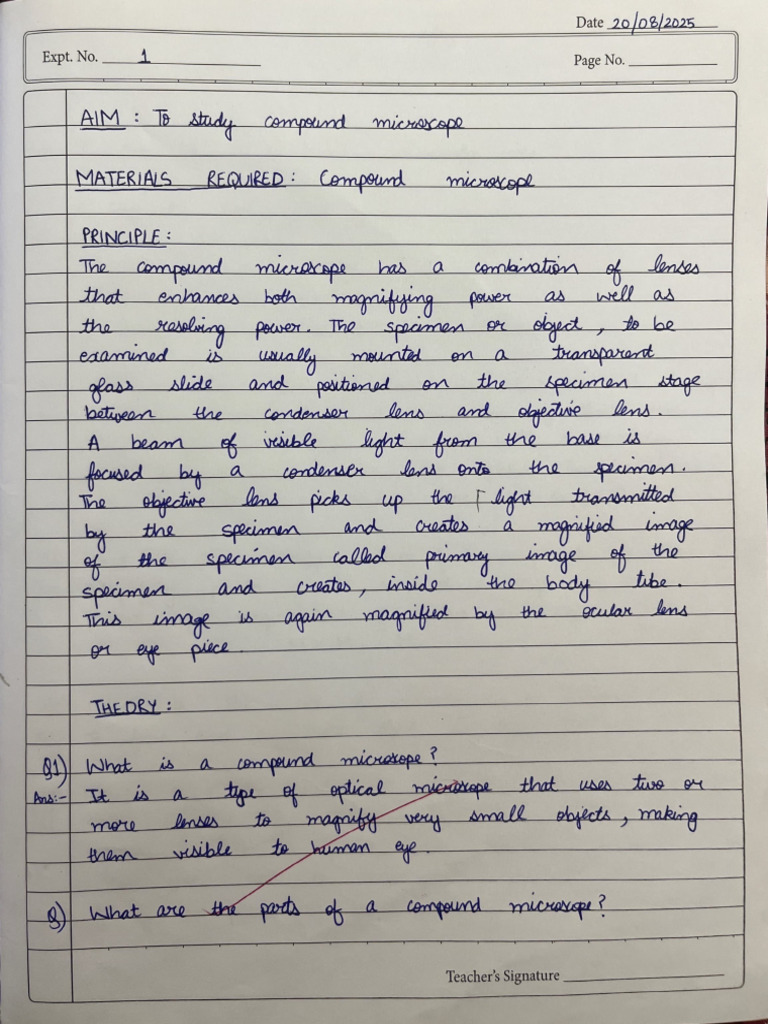 Date 20/08/2025
Expt. No. 1
Page No.
AIM : To study compound microscope
MATERIALS REQUIRED : Compound microscope
PRINCIPLE :
The compound microscope has a combination of lenses
that enhances both magnifying power as well as
the resolving power. The specimen or object, to be
examined is usually mounted on a transparent
glass slide and positioned on the specimen stage
between the condenser lens and objective lens.
A beam of visible light from the base is
focused by a condenser lens onto the specimen.
The objective lens picks up the light transmitted
by the specimen and creates a magnified image
of the specimen called primary image of the
specimen and creates, inside the body tube.
This image is again magnified by the ocular lens
or eye piece.
THEORY :
Q1) What is a compound microscope?
Ans:- It is a type of optical microscope that uses two or
more lenses to magnify very small objects, making
them visible to human eye.
Q) What are the parts of a compound microscope?
Teacher's Signature